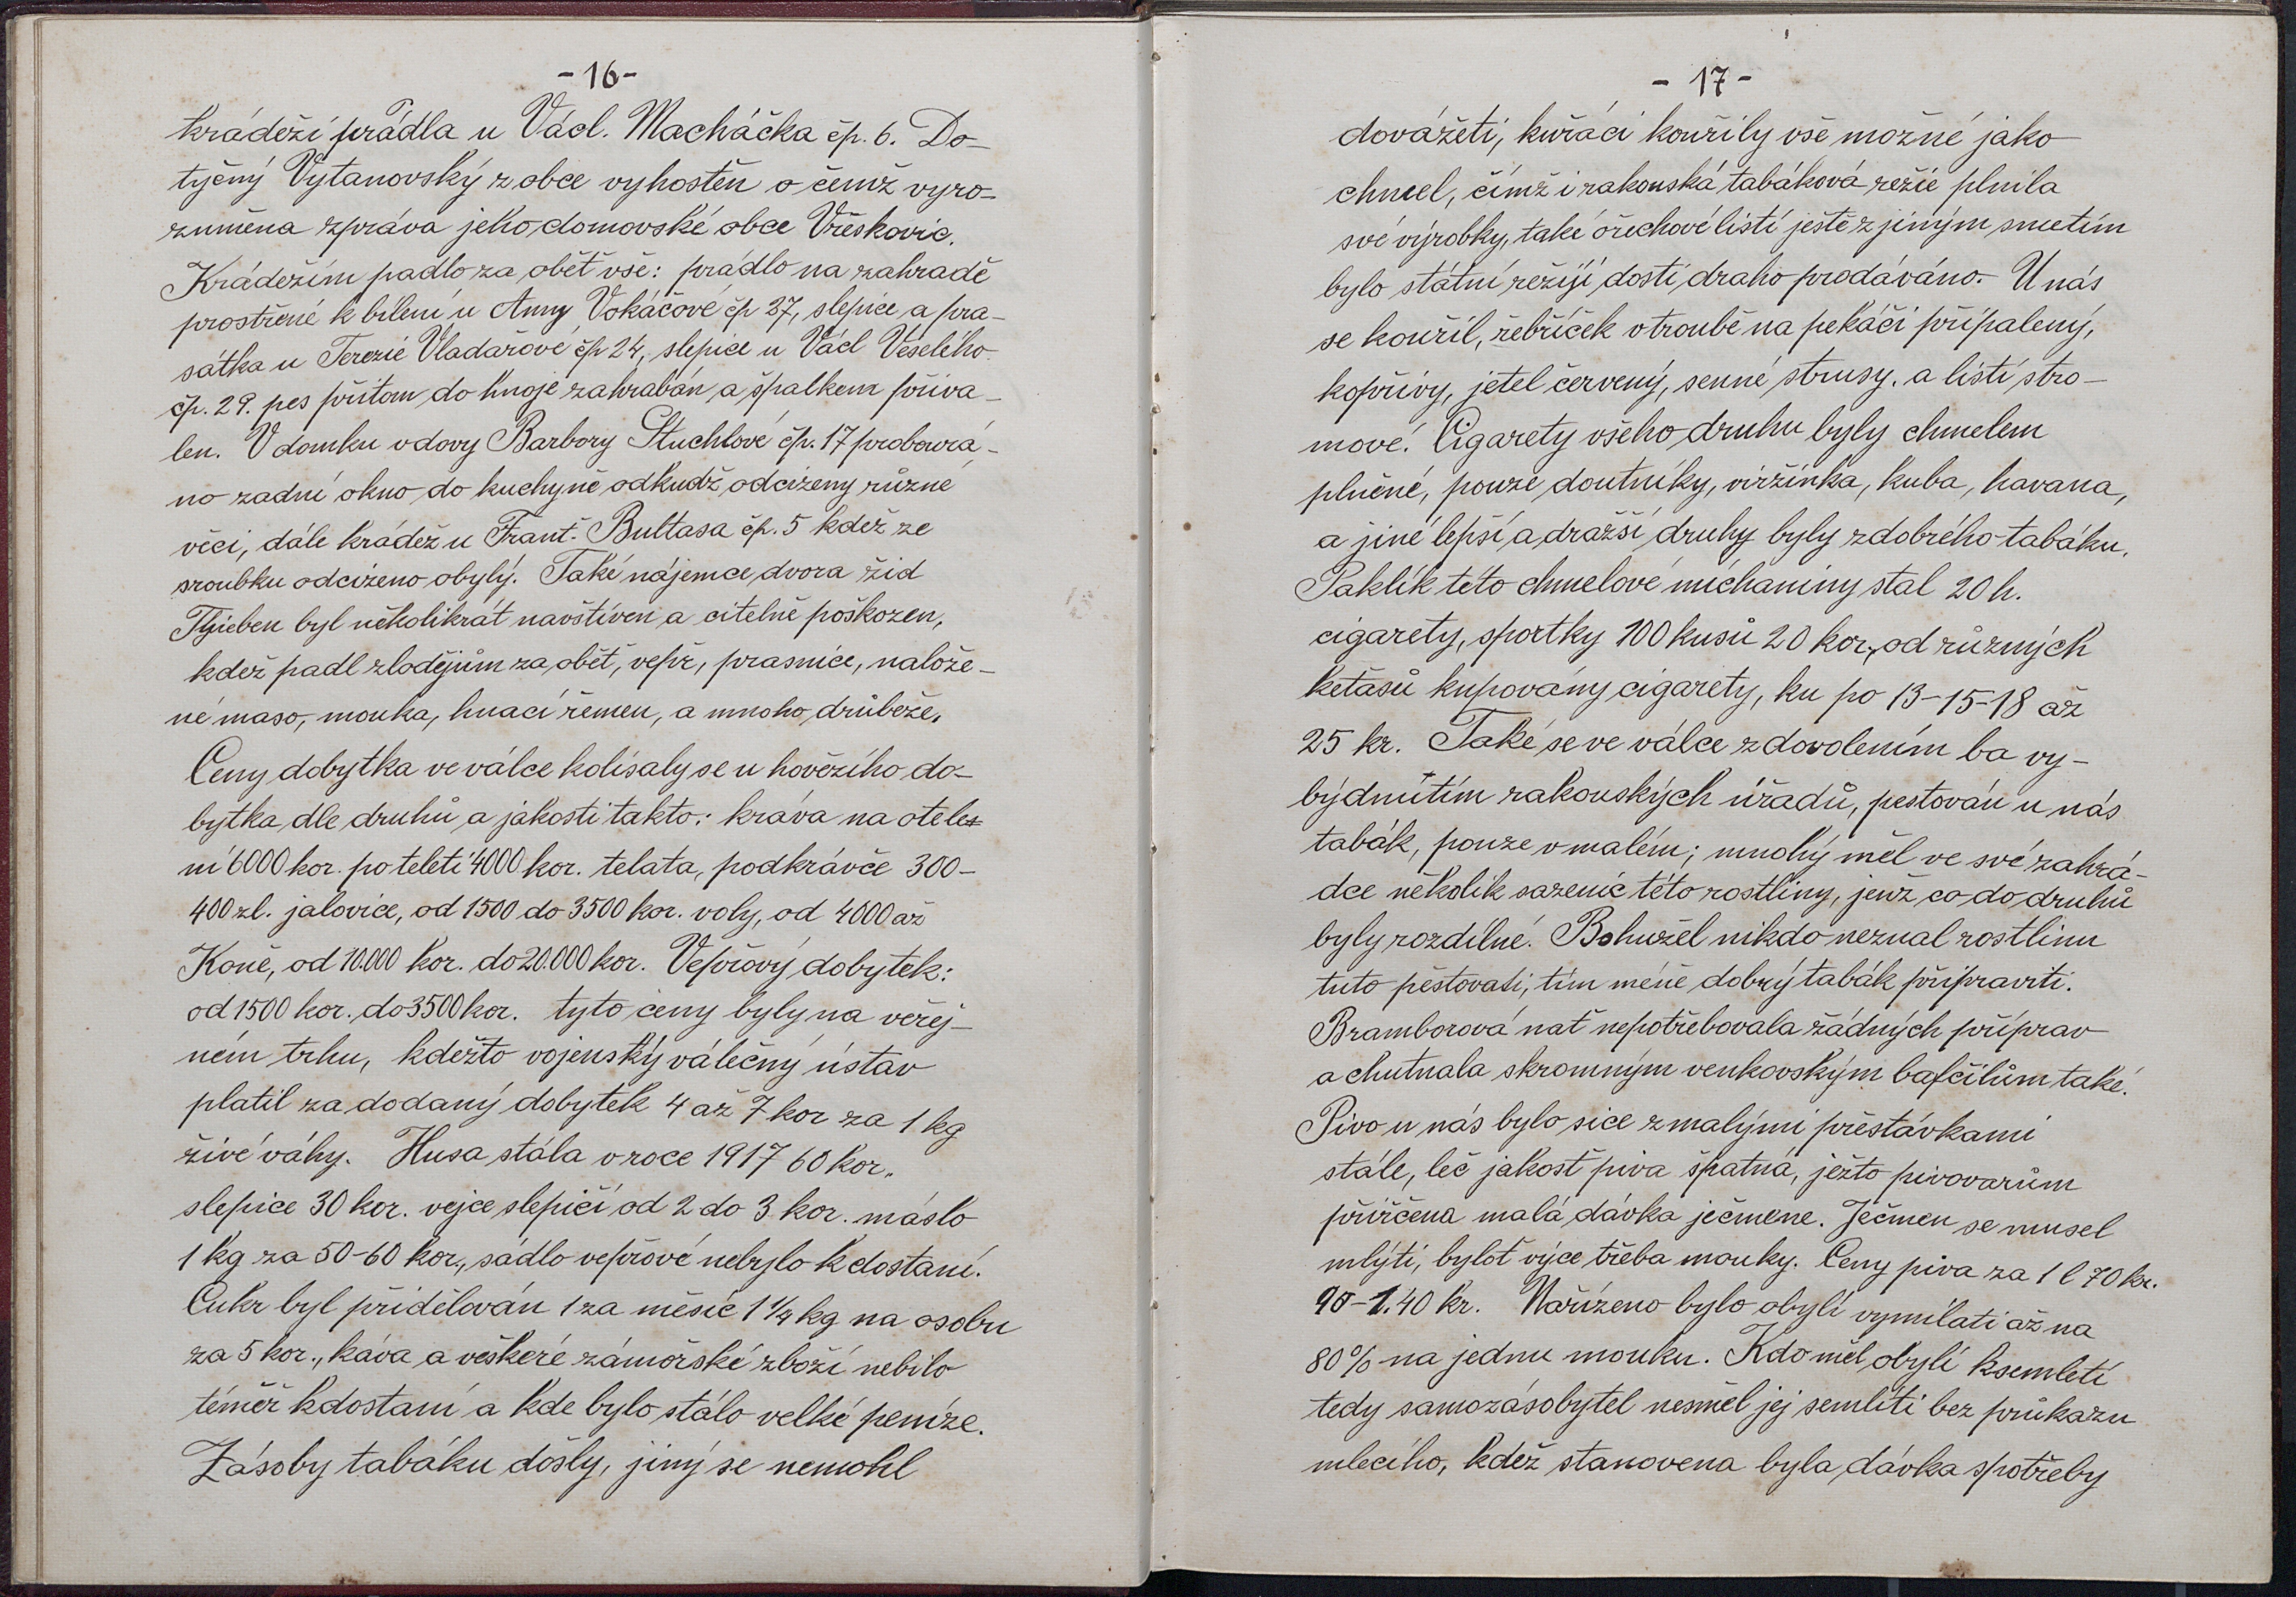 -16-
krádeží prádla u Václ. Macháčka čp. 6. Do-
tyčný Vytanovský z obce vyhostěn o čemž vyro-
zuměna zpráva jeho domovské obce Vřeskovic.
Krádežím padlo za oběť vše: prádlo na zahradě
prostřené k bílení u Anny Vokáčové čp 27, slepice a pra-
sátka u Terezie Vladařové čp 24, slepice u Václ Veselého
čp. 29. pes přitom do hnoje zahrabán a špalkem přiva-
len. V domku vdovy Barbory Stuchlové čp. 17 probourá-
no zadní okno do kuchyně odkudž odcizeny různé
věci, dále krádež u Frant. Bultasa čp. 5 kdež ze
sroubku odcizeno obylý. Také nájemce dvora žid
byl několikrát navštíven a citelně poškozen,
kdež padl zlodějům za oběť, vepř, prasnice, nalože-
né maso, mouka, hnací řemen, a mnoho drůbeže.
Ceny dobytka ve válce kolísaly se u hovězího do-
bytka dle druhů a jakosti takto: kráva na otele
ní 6000 kor. po teleti 4000 kor. telata, podkrávče 300-
400 zl. jalovice, od 1500 do 3500 kor. voly, od 4000 až
Koně, od 10.000 kor. do 20.000 kor. Vepřový dobytek:
od 1500 kor. do 3500 kor. tyto ceny byly na veřej-
ném trhu, kdežto vojenský válečný ústav
platil za dodaný dobytek 4 až 7 kor za 1 kg
živé váhy. Husa stála v roce 1917 60 kor.
slepice 30 kor. vejce slepičí od 2 do 3 kor. máslo
1 kg za 50-60 kor., sádlo vepřové nebylo k dostaní.
Cukr byl přidělován 1 za měsíc 1 1/4 kg na osobu
za 5 kor., káva a veškeré zámořské zboží nebilo
téměř kdostaní a kde bylo stálo velké peníze.
Zásoby tabáku došly, jiný se nemohl
- 17 -
dovážeti, kuřáci kouřily vše možné jako
chmel, čímž i rakouská tabáková režie plnila
své výrobky, také ořechové listí ještě z jiným smetím
bylo státní režijí dosti draho prodáváno. U nás
se kouřil, řebříček v troubě na pekáči připalený,
kopřivy, jetel červený, senné strusy, a listí stro-
mové. Cigarety všeho druhu byly chmelem
plněné, pouze doutníky, viržinka, kuba, havana,
a jiné lepší a dražší druhy byly z dobrého tabáku.
Paklík této chmelové míchaniny stal 20 h.
cigarety, sportky 100 kusů 20 kor., od různých
keťasů kupovány cigarety, ku po 13-15-18 až
25 kr. Také se ve válce z dovolením ba vy-
býdnutím rakouských úřadů, pestován u nás
tabák, pouze v malém; mnohý měl ve své zahrá-
dce několik sazenic této rostliny, jenž co do druhů
byly rozdílné. Bohužel nikdo neznal rostlinu
tuto pěstovati, tím méně dobrý tabák připraviti.
Bramborová nať nepotřebovala žádných příprav
a chutnala skromným venkovským bafčilům také.
Pivo u nás bylo sice z malými přestávkami
stále, leč jakosť piva špatná, ježto pivovarům
přiřčena malá dávka ječmene. Ječmen se musel
mlýti, byloť výce třeba mouky. Ceny piva za 1 l 70 kr.
90-1.40 kr. Nařízeno bylo obylí vymílati až na
80% na jednu mouku. Kdo měl obylí ksemletí
tedy samozásobytel nesměl jej semlíti bez průkazu
mlecího, kdež stanovena byla dávka spotřeby